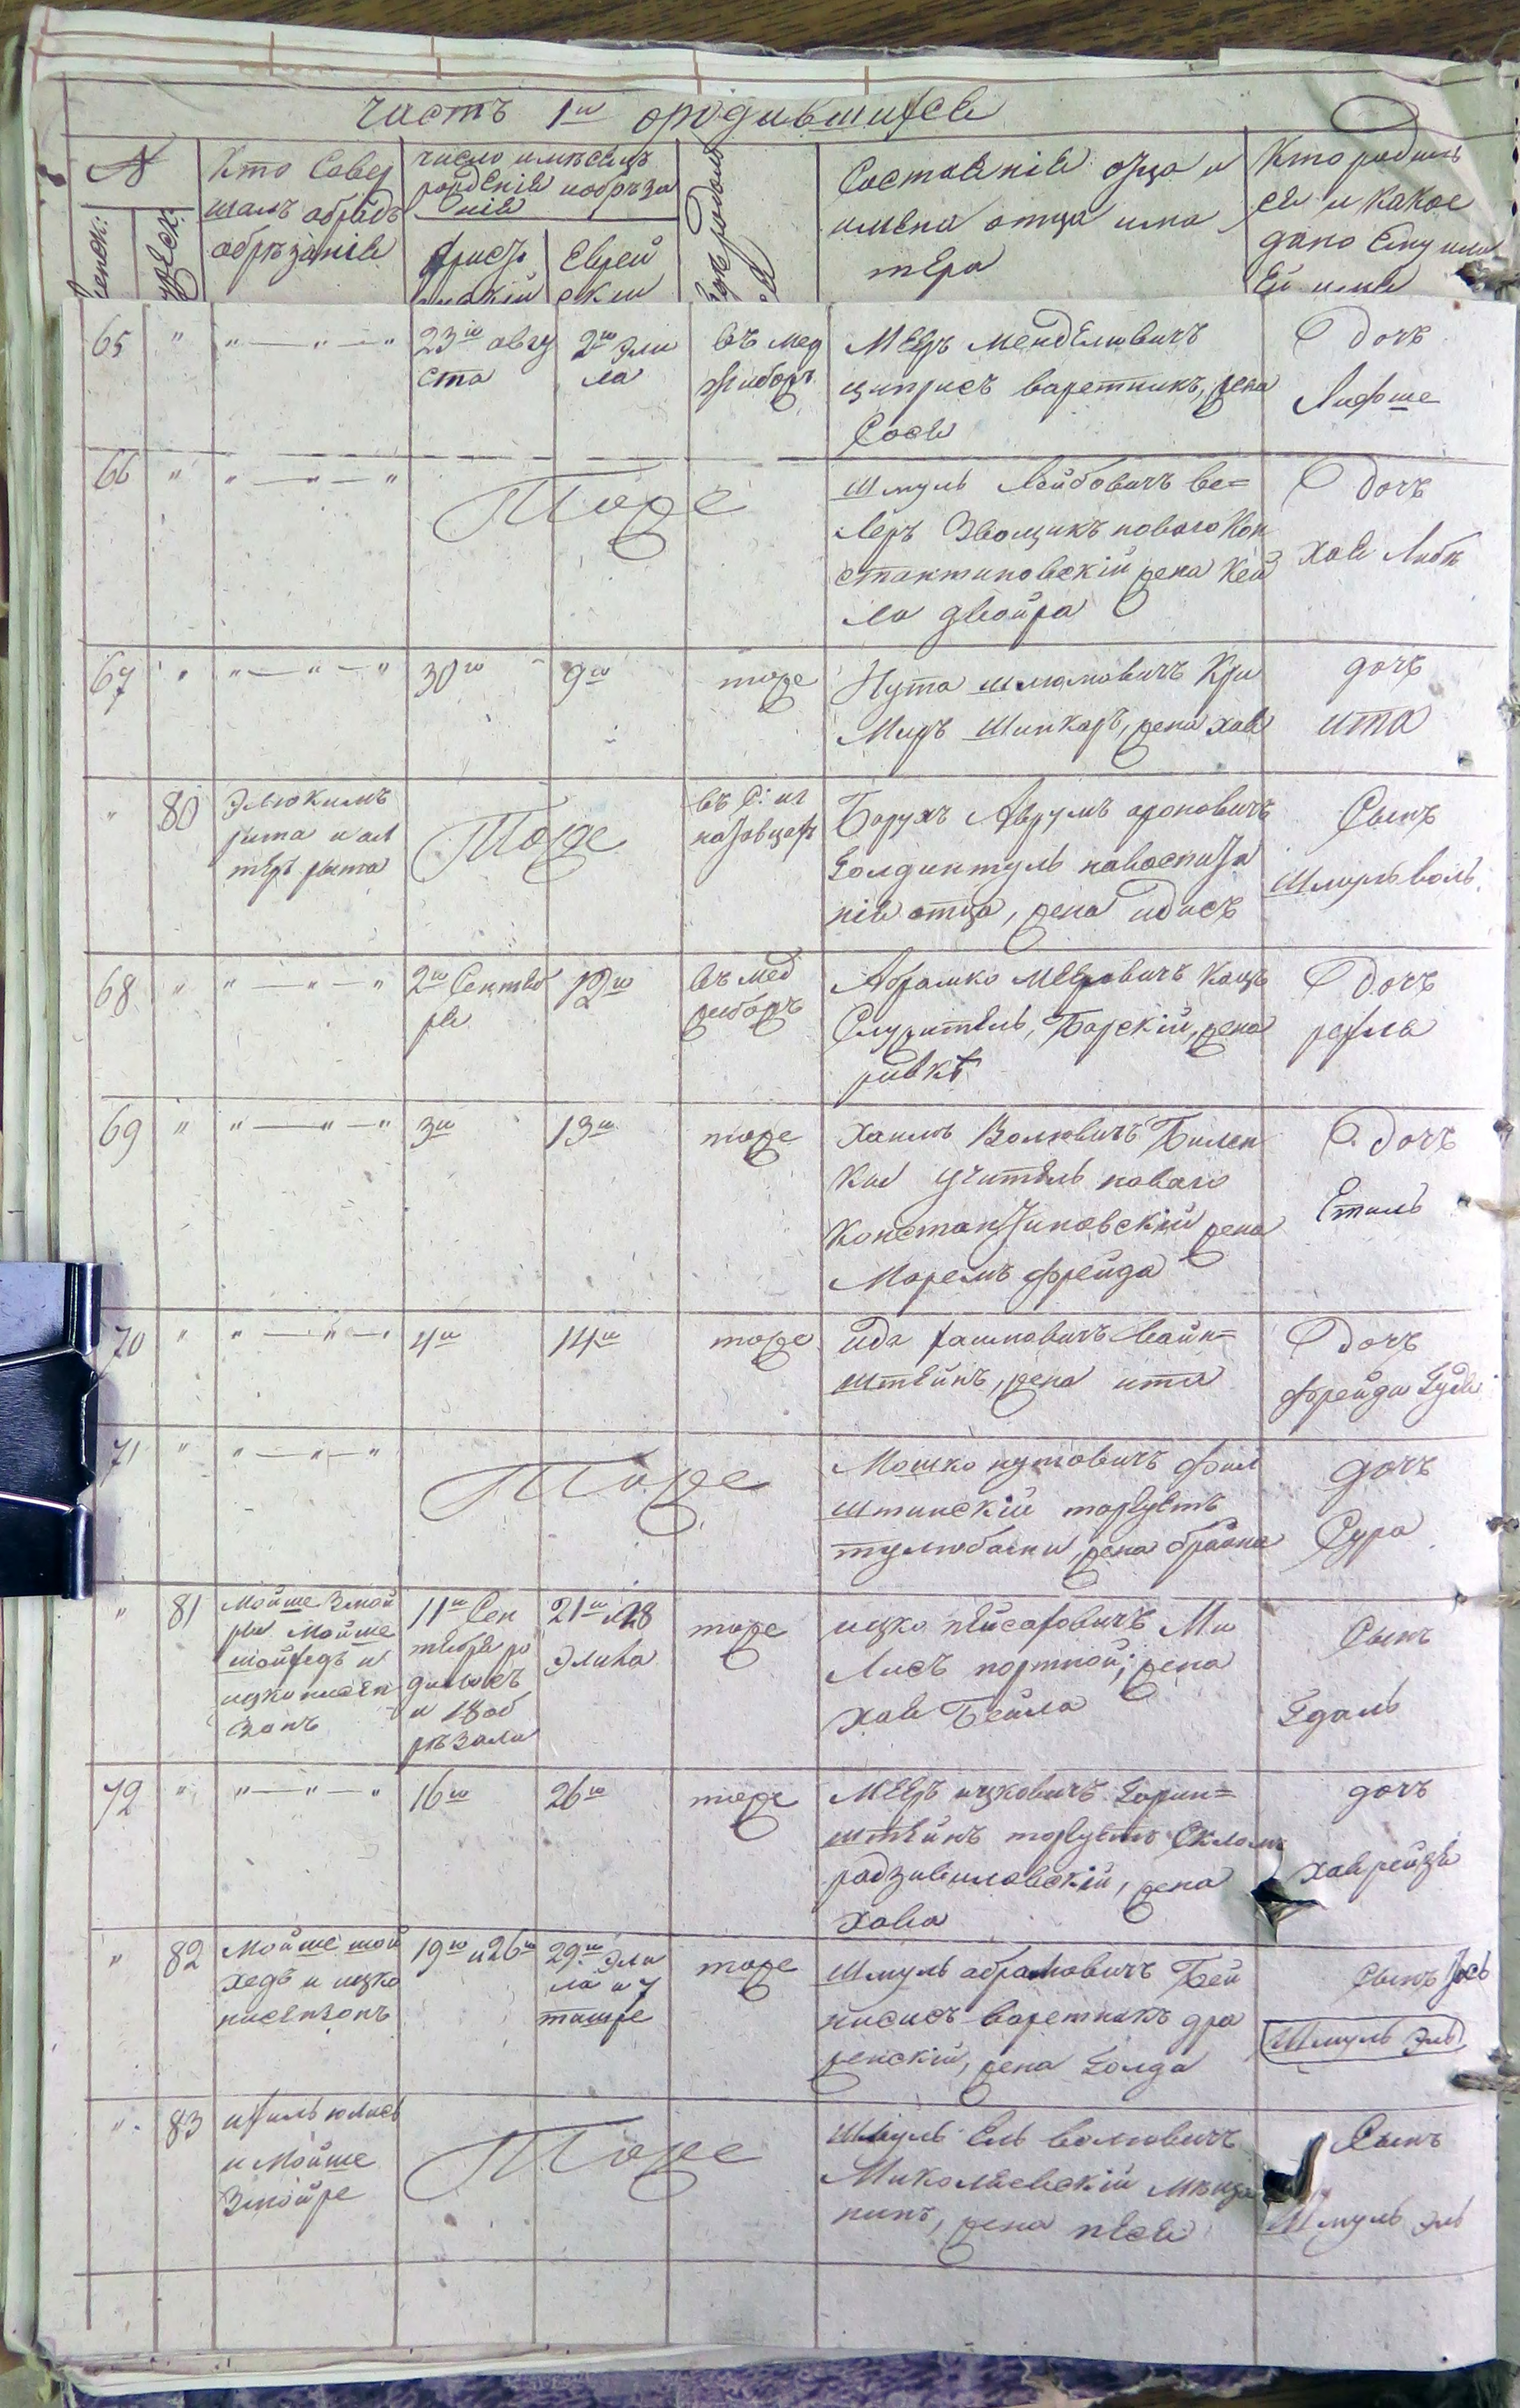 часть 1й ородившихся
№
Кто Совер
шалъ обрядъ
обрѣзанія
число имѣсяцъ
рожденія иобрѣза
нія
Еврей
Состояніе отца и
имена отца има
тера
Кто родил
ся и какое
дано Ему или
Ей имя
65 " " — " — " 23го авгу
ста
2го эли
ла
въ мед
жибожъ
Меэръ Менделювичъ
циприсъ варетникъ, жена
Сося
дочъ
Лифше
66 " " — " — " Тоже
Шмуль Лейбовичъ ве=
леръ Звощикъ нового Кон
стантиновскій жена Кей
ла двойра
дочъ
хая Либе
67 " " — " — " 30го 9го тоже
Нута шлюмовичъ Кри
Меръ Шинкаръ, жена хая
дочъ
ита
" 80 Элюкимъ
рита и ал
теръ рыта
Тоже
въ С: иг
натовцахъ
Борухъ Аврумъ ароновичъ
Голдинтуль навоспита
ніи отца, жена идисъ
Сынъ
Шмуль воль
68 " " — " — " 2го Сентяб
ря
12го
въ мед
жибожъ
Абрашко Меэровичъ Кацъ
Служитель, Барскій, жена
ривке
дочъ
рахля
69 " " — " — " 3го 13го тоже
Хаимъ Волювичъ Билен
кій учитель нового
Константиновскій жена
Маремъ фрейда
дочъ
Етиль
70 " " — " — " 4го 14го тоже
ида хашковичъ вайн=
штейнъ, жена ита
дочъ
фрейда Гудя
71 " " — " — " Тоже
Мошко нутовичъ фил
штинскій торгуетъ
жена брайна
дочъ
Сура
" 81 Мойше Змой
ре Мойше
шойхедъ и
ицко нисен
зонъ
11го Сен
тября ро
дилосъ
и 18 об
рѣзали
21го и 28
Элила
тоже
ицко пейсаховичъ Ми
лисъ портной, жена
хая Бейла
Сынъ
Гдаль
72 " " — " — " 16го 26го тоже
Меэръ ицковичъ Горин=
штейнъ торгуетъ Скломъ
радзивиловскій, жена
хава
дочъ
хая рейзя
" 82 Мойше шой
хедъ и ицко
нисензонъ
19го и 26го
29го эли
ла и 7
тишре
тоже
Шмуль абрамовичъ Бей
нисисъ варетникъ дра
женскій, жена Голда
Сынъ Іось
Шмуль Эль
" 83 ихиль юлисъ
и Мойше
Змойре
Тоже
Шмуль Ель волювичъ
Миколаевскій мѣща
нинъ, жена песя
Сынъ
Шмуль эль